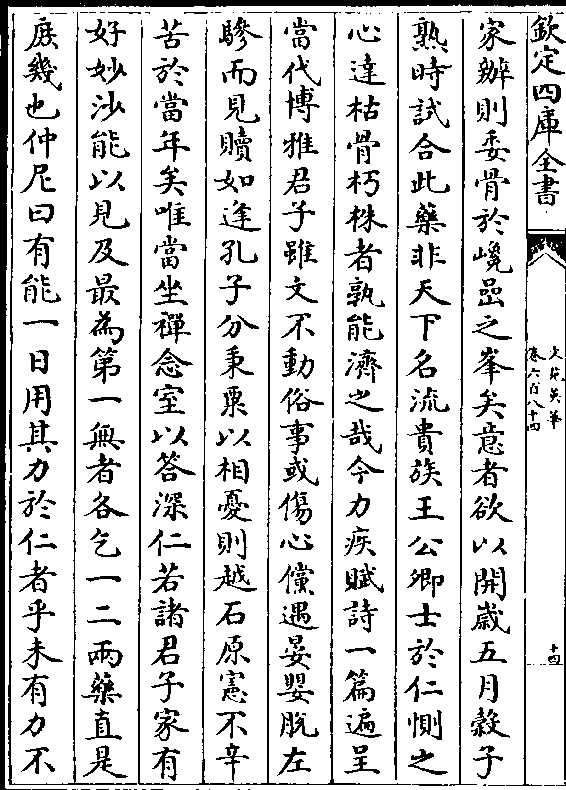 欽定四庫全書
文苑英華
卷六百八十四
十四
家辦則委骨於巉嵒之峯矣意者欲以開歲五月穀子
熟時試合此藥非天下名流貴族王公卿士於仁惻之
心達枯骨朽株者孰能濟之哉今力疾賦詩一篇遍呈
當代博雅君子雖文不動俗事或傷心儻遇晏嬰脫左
驂而見贖如逢孔子分秉粟以相憂則越石原憲不辛
苦於當年矣唯當坐禪念室以答深仁若諸君子家有
好妙沙能以見及最為第一無者各乞一二兩藥直是
庶幾也仲尼曰有能一日用其力於仁者乎未有力不